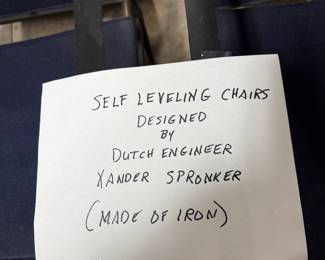 SELF LEVELING CHAIRS
DESIGNED
BY
DUTCH ENGINEER
XANDER SPRONKER
(MADE OF IRON)